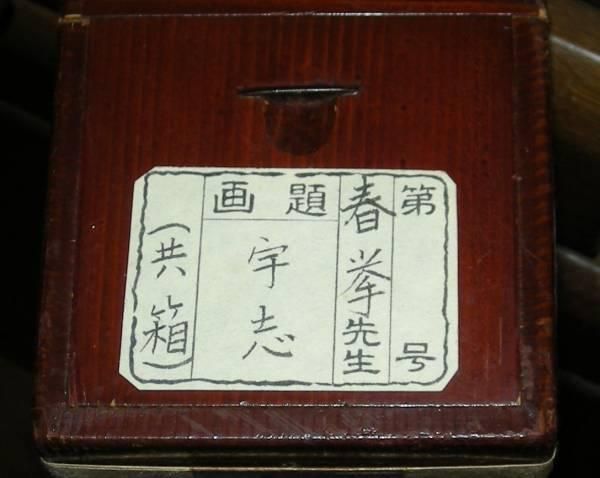 第 号
春挙先生
画題
宇志
(共箱)